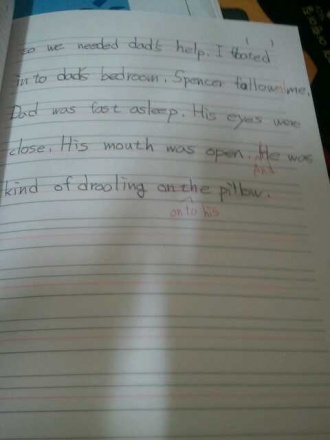 so we needed dad's help. I
in to dad's bedroom. Spencer me.
Dad was fast asleep. His eyes were
close. His mouth was open. He was
And
kind of drooling on the pillow.
onto his